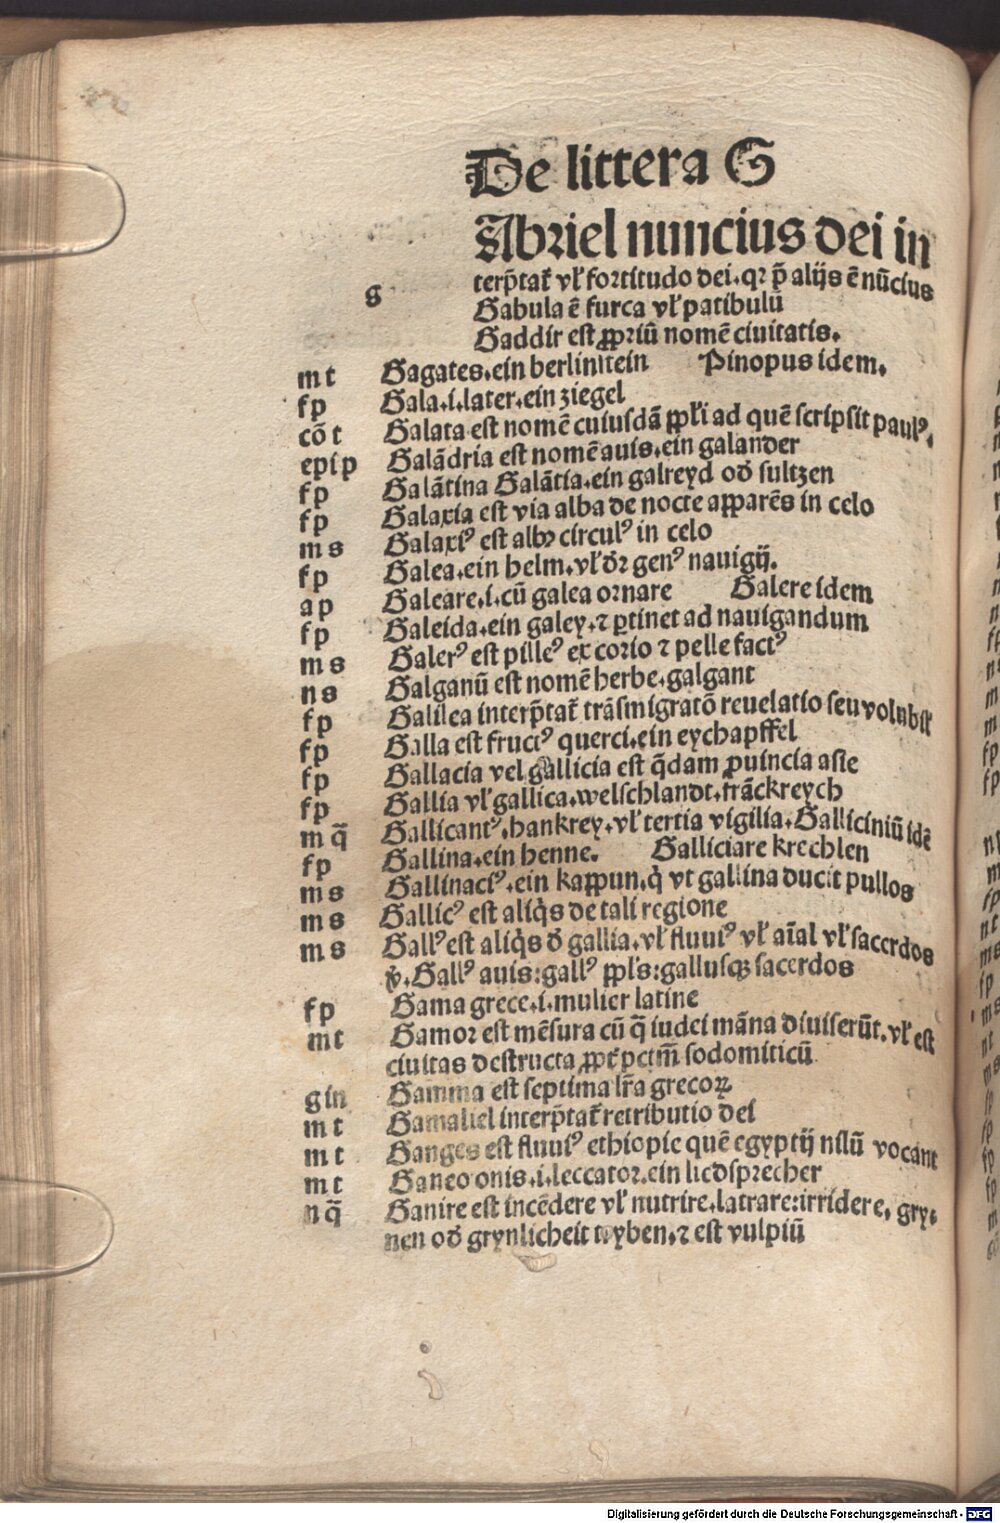 De littera G
Abriel nuncius dei in
g terp̄tat᷑ vl̕ fortitudo dei. qꝛ p̄ alijs ē nūcius
Gabula ē furca vl̕ patibulū
Gaddir est ꝓpriū nomē ciuitatis.
m t Gagates. ein berlinstein Pinopus idem.
f p Gala. i. later. ein ziegel
cō t Galata est nomē cuiusdā ppl̕i ad quē scripsit paulꝰ.
epi p Galādria est nomē auis. ein galander
f p Galātina Galātia. ein galreyd od̕ sultzen
f p Galaxia est via alba de nocte apparēs in celo
m s Galaxiꝰ est albꝰ circulꝰ in celo
f p Galea. ein helm. vl̕ d̕r genꝰ nauigij.
a p Galeare. i. cū galea ornare Galere idem
f p Galeida. ein galey. ⁊ ꝑtinet ad nauigandum
m s Galerꝰ est pilleꝰ ex corio ⁊ pelle factꝰ
n s Galganū est nomē herbe. galgant
f p Galilea interp̄tat᷑ trāsmigratō reuelatio seu volubil̕
f p Galla est fructꝰ querci. ein eychapffel
f p Gallacia vel gallicia est q̄dam ꝓuincia asie
f p Gallia vl̕ gallica. welschlandt. frāckreych
m q̄ Gallicantꝰ. hankrey. vl̕ tertia vigilia. Galliciniū idē
f p Gallina. ein henne. Galliciare krechlen
m s Gallinaciꝰ. ein kappun. q̇ vt gallina ducit pullos
m s Gallicꝰ est aliq̇s de tali regione
m s Gallꝰ est aliq̇s d̕ gallia. vl̕ fluuiꝰ vl̕ aīal vl̕ sacerdos
ꝟ. Gallꝰ auis: gallꝰ ppl̕s: gallusqꝫ sacerdos
f p Gama grece. i. mulier latine
m t Gamor est mēsura cū q̄ iudei māna diuiserūt. vl̕ est
ciuitas destructa ꝓpt̕ pctm̄ sodomiticū
g in Gamma est septima lr̄a grecoꝝ
m t Gamaliel interp̄tat᷑ retributio dei
m t Ganges est fluuiꝰ ethiopie quē egyptij nilū vocant
m t Ganeo onis. i. leccator. ein liedsprecher
n q̄ Ganire est incēdere vl̕ nutrire. latrare: irridere, gry-
nen od̕ grynlicheit tryben. ⁊ est vulpiū
Digitalisierung gefördert durch die Deutsche Forschungsgemeinschaft - DFG